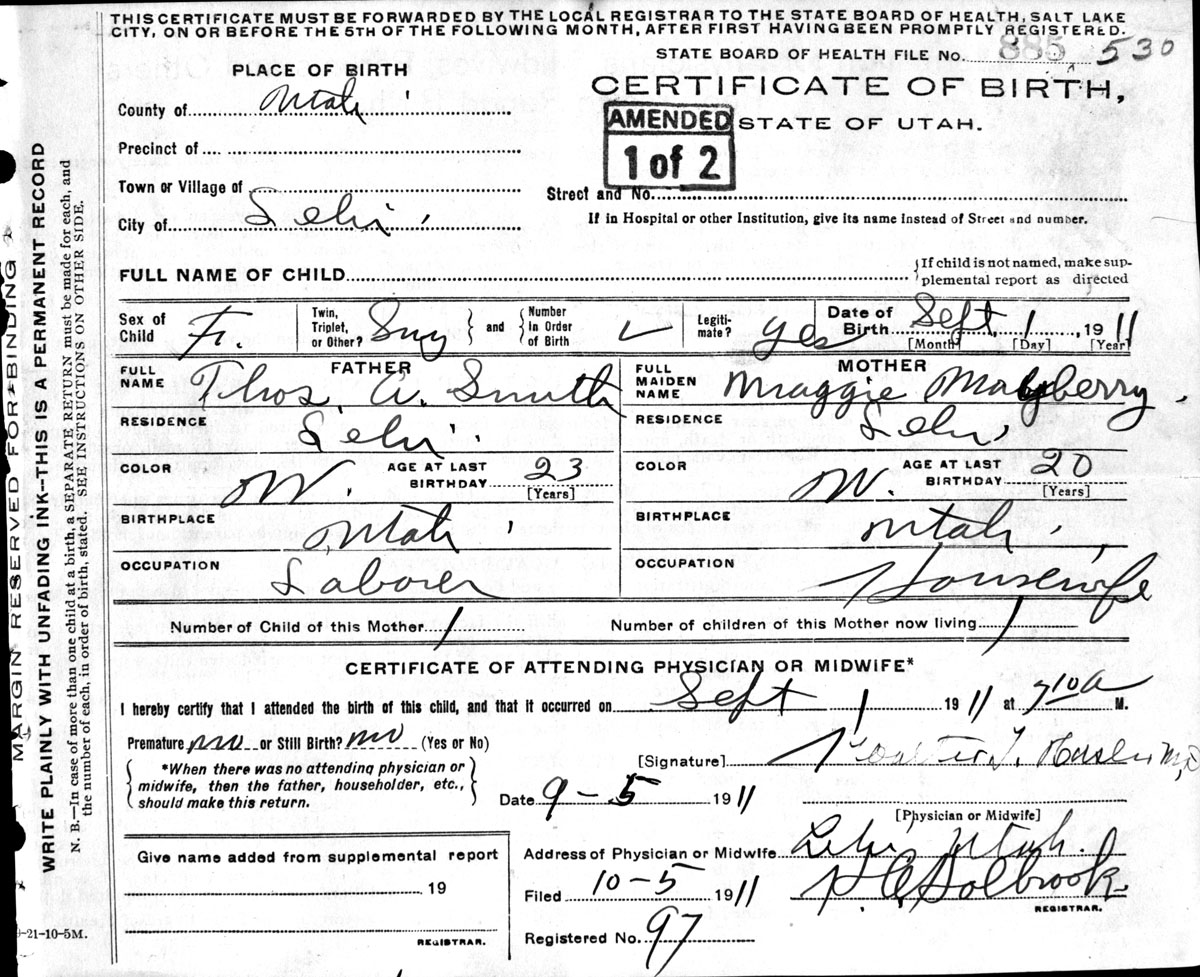 THIS CERTIFICATE MUST BE FORWARDED BY THE LOCAL REGISTRAR TO THE STATE BOARD OF HEALTH, SALT LAKE
CITY, ON OR BEFORE THE 5TH OF THE FOLLOWING MONTH, AFTER FIRST HAVING BEEN PROMPTLY REGISTERED.
STATE BOARD OF HEALTH FILE No. 885 530
PLACE OF BIRTH
CERTIFICATE OF BIRTH,
County of Utah
AMENDED
STATE OF UTAH.
1 of 2
Precinct of
Town or Village of
Street and No.
City of Lehi
If in Hospital or other Institution, give its name Instead of Street and number.
FULL NAME OF CHILD
{If child is not named, make sup-
plemental report as directed
Sex of Child F. Twin, Triplet, or Other? Sing } and { Number In Order of Birth Legiti-mate? yes Date of Birth Sept 1, 1911
[Month] [Day] [Year]
FATHER
MOTHER
FULL NAME Thos. A. Smith
FULL MAIDEN NAME Maggie Mayberry.
RESIDENCE Lehi
RESIDENCE Lehi
COLOR W. AGE AT LAST BIRTHDAY 23 [Years]
COLOR W. AGE AT LAST BIRTHDAY 20 [Years]
BIRTHPLACE Utah
BIRTHPLACE Utah
OCCUPATION Laborer
OCCUPATION Housewife
Number of Child of this Mother 1
Number of children of this Mother now living 1
CERTIFICATE OF ATTENDING PHYSICIAN OR MIDWIFE*
I hereby certify that I attended the birth of this child, and that it occurred on Sept 1 1911 at 710 a M.
Premature no or Still Birth? no (Yes or No)
[Signature] Walter T. M.D.
{ *When there was no attending physician or
midwife, then the father, householder, etc.,
should make this return. }
Date 9-5 1911
[Physician or Midwife]
Give name added from supplemental report
Address of Physician or Midwife Lehi, Utah.
19
Filed 10-5 1911 Holbrook
REGISTRAR.
Registered No. 97
REGISTRAR.
-21-10-5M.
MARGIN RESERVED FOR BINDING
WRITE PLAINLY WITH UNFADING INK--THIS IS A PERMANENT RECORD
N. B.—In case of more than one child at a birth, a SEPARATE RETURN must be made for each, and
the number of each, in order of birth, stated. SEE INSTRUCTIONS ON OTHER SIDE.